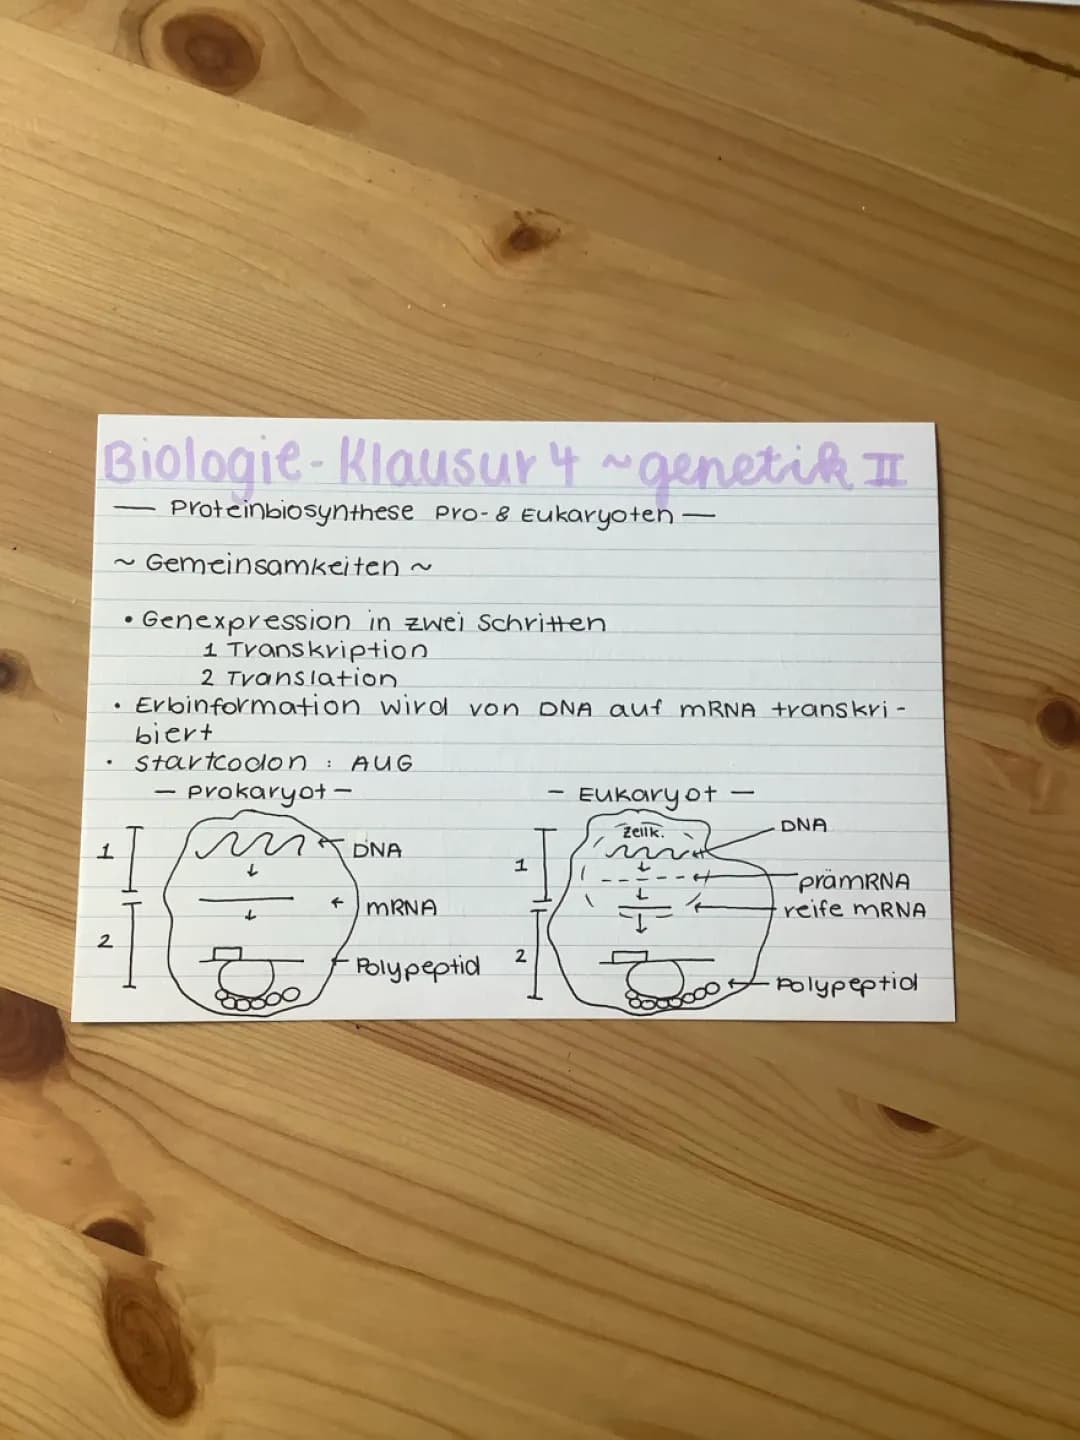 Biologie-Klausur 4 ~genetik II
— Proteinbiosynthese Pro- & Eukaryoten —
~ Gemeinsamkeiten ~
• Genexpression in zwei Schritten
1 Transkription
2 Translation
• Erbinformation wird von DNA auf mRNA transkri-
biert
• Startcodon : AUG
— Prokaryot —
1
DNA
mRNA
2
Polypeptid
— Eukaryot —
Zellk.
DNA
1
prämRNA
reife mRNA
2
Polypeptid